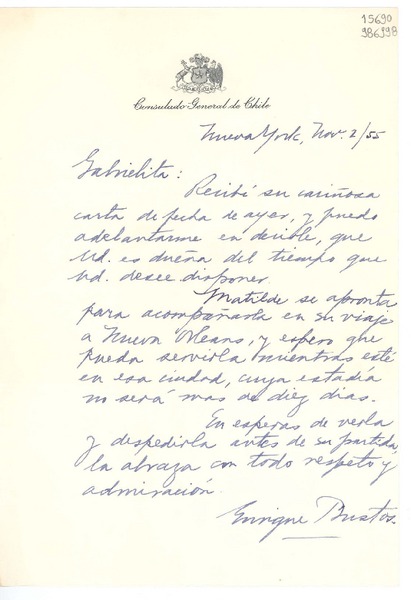 15690
986598
Consulado General de Chile
Nueva York, Nov. 2/55
Gabrielita:
Recibí su cariñosa
carta de fecha de ayer, y puedo
adelantarme en decirle, que
Ud. es dueña del tiempo que
Ud. desee disponer.
Matilde se apronta
para acompañarla en su viaje
a Nueva Orleans, y espero que
pueda servirla mientras esté
en esa ciudad, cuya estadía
no será mas de diez dias.
En esperas de verla
y despedirla antes de su partida,
la abraza con todo respeto y
admiración.
Enrique Bustos.